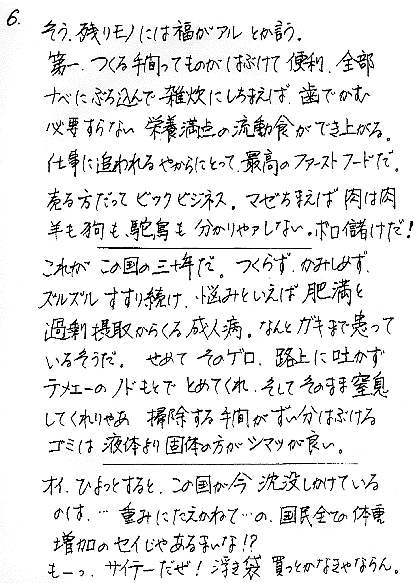 6.
そう、残りモノには福がアル とか言う。
第一、つくる手間ってものがはぶけて便利、全部
ナベにぶち込んで雑炊にしちまえば、歯でかむ
必要すらない 栄養満点の流動食ができ上がる。
仕事に追われるやからにとって、最高のファーストフードだ。
売る方だって ビックビジネス。マゼちまえば 肉は肉
羊も狗も、駝鳥も 分かりやァしない。ボロ儲けだ!
これが この国の三十年だ。つくらず、かみしめず、
ズルズル すすり続け、悩みといえば 肥満と
過剰摂取からくる成人病。なんとガキまで患って
いるそうだ。 せめて そのゲロ、路上に吐かず
テメエーの ノドもとで とめてくれ、そしてそのまま窒息
してくれりゃあ 掃除する手間が ずい分はぶける
ゴミは 液体より固体の方がシマツが良い。
オイ、ひょっとすると、この国が今 沈没しかけている
のは、… 重みにたえかねて…の、国民全ての体重
増加のセイじゃあるまいな!?
もーっ、サイテーだぜ! 浮き袋 買っとかなきゃならん。